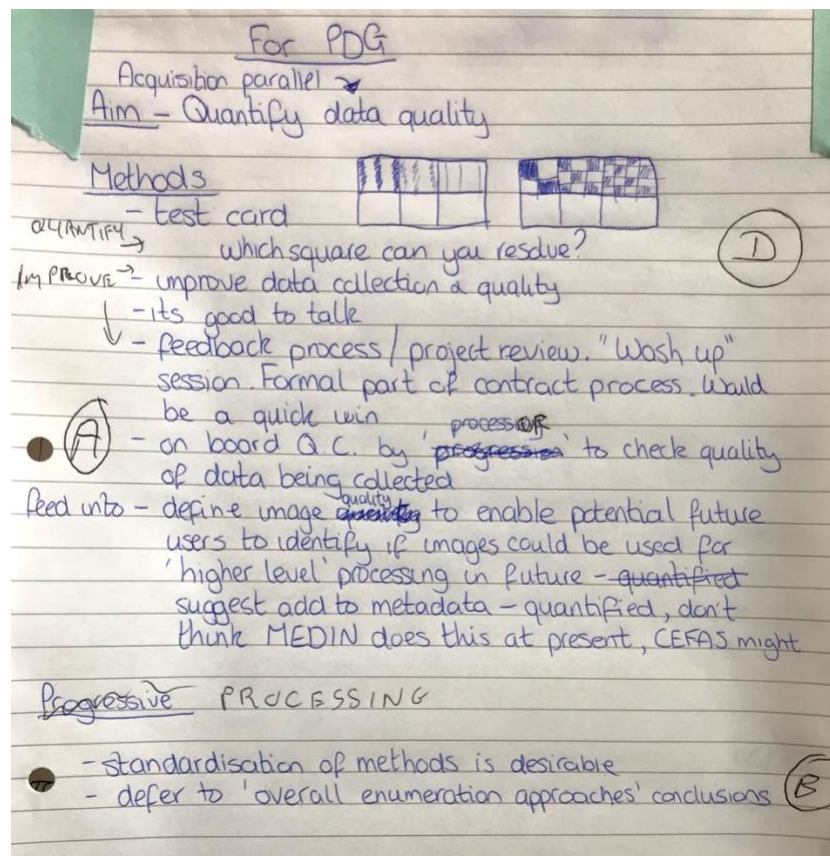 For PDG
Acquisition parallel
Aim - Quantify data quality
Methods
- test card
QUANTIFY → which square can you resolve?
D
IMPROVE → - improve data collection & quality
- its good to talk
- feedback process / project review. "Wash up"
session. Formal part of contract process. Would
be a quick win
A
- on board Q.C. by 'progression processor' to check quality
of data being collected
feed into - define image quality to enable potential future
users to identify if images could be used for
'higher level' processing in future - quantified
suggest add to metadata - quantified, don't
think MEDIN does this at present, CEFAS might
Progressive PROCESSING
- standardisation of methods is desirable
- defer to 'overall enumeration approaches' conclusions B